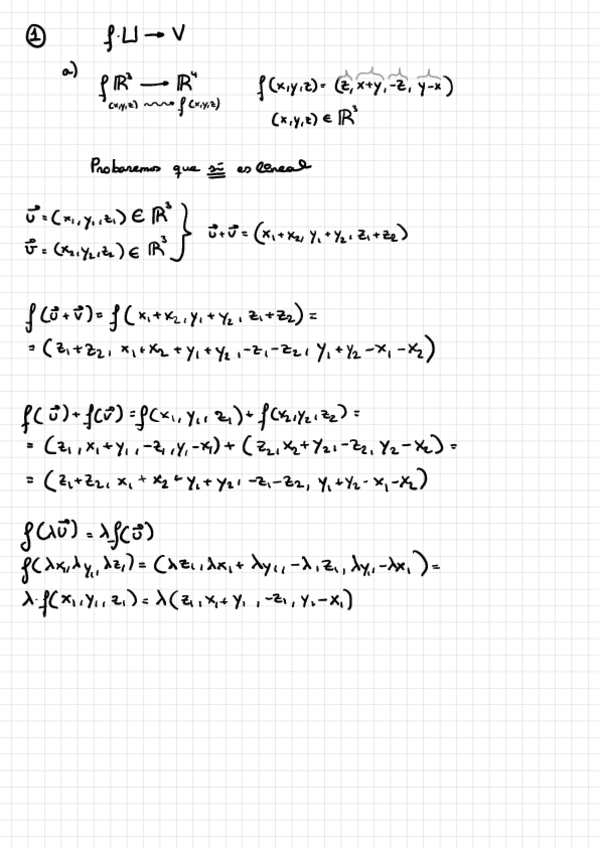 ① f: U → V
a) f ℝ³ → ℝ⁴ f(x,y,z) = (z, x+y, -z, y-x)
(x,y,z) ⇝ f(x,y,z) (x,y,z) ∈ ℝ³
Probaremos que sí es lineal
u⃗ = (x₁, y₁, z₁) ∈ ℝ³
v⃗ = (x₂, y₂, z₂) ∈ ℝ³ } u⃗+v⃗ = (x₁+x₂, y₁+y₂, z₁+z₂)
f(u⃗+v⃗) = f(x₁+x₂, y₁+y₂, z₁+z₂) =
= (z₁+z₂, x₁+x₂+y₁+y₂, -z₁-z₂, y₁+y₂-x₁-x₂)
f(u⃗)+f(v⃗) = f(x₁, y₁, z₁) + f(x₂, y₂, z₂) =
= (z₁, x₁+y₁, -z₁, y₁-x₁) + (z₂, x₂+y₂, -z₂, y₂-x₂) =
= (z₁+z₂, x₁+x₂+y₁+y₂, -z₁-z₂, y₁+y₂-x₁-x₂)
f(λu⃗) = λf(u⃗)
f(λx₁, λy₁, λz₁) = (λz₁, λx₁+λy₁, -λ₁z₁, λy₁-λx₁) =
λ·f(x₁, y₁, z₁) = λ(z₁, x₁+y₁, -z₁, y₁-x₁)